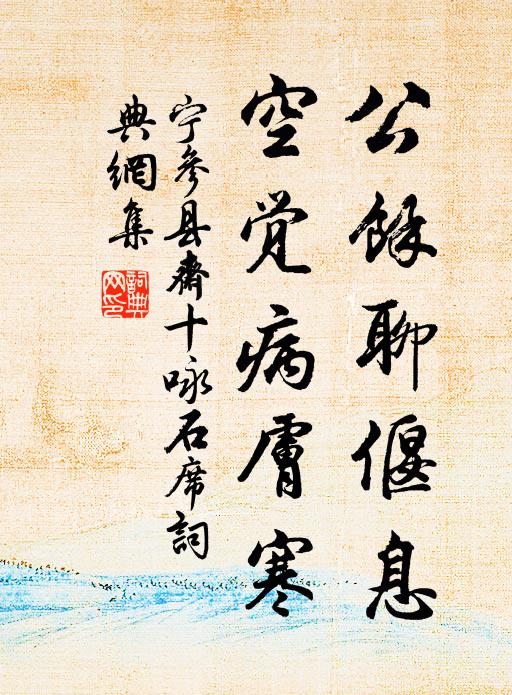 公馀聊偃息
空觉病膚寒
宁参县斋十咏石席詞
典網集
詞典
网印